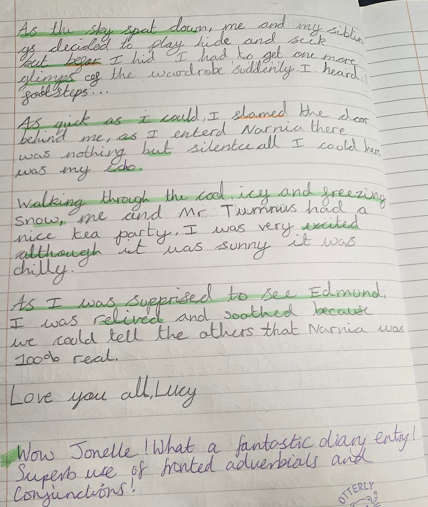 As the sky spat down, me and my siblin
gs decided to play hide and seek
but befor I hid I had to get one more
glimps of the wardrobe suddenly I heard
footsteps...
As quick as i could, I slamed the door
behind me, as I enterd Narnia there
was nothing but silence all I could hear
was my echo.
Walking through the cool, icy and freezing
snow, me and Mr Tumnus had a
nice tea party. I was very excited
although it was sunny it was
chilly.
As I was supprised to see Edmund,
I was relived and soothed because
we could tell the others that Narnia was
100% real.
Love you all, Lucy
Wow Jonelle! What a fantastic diary entry!
Superb use of fronted adverbials and
conjunctions!
OTTERLY